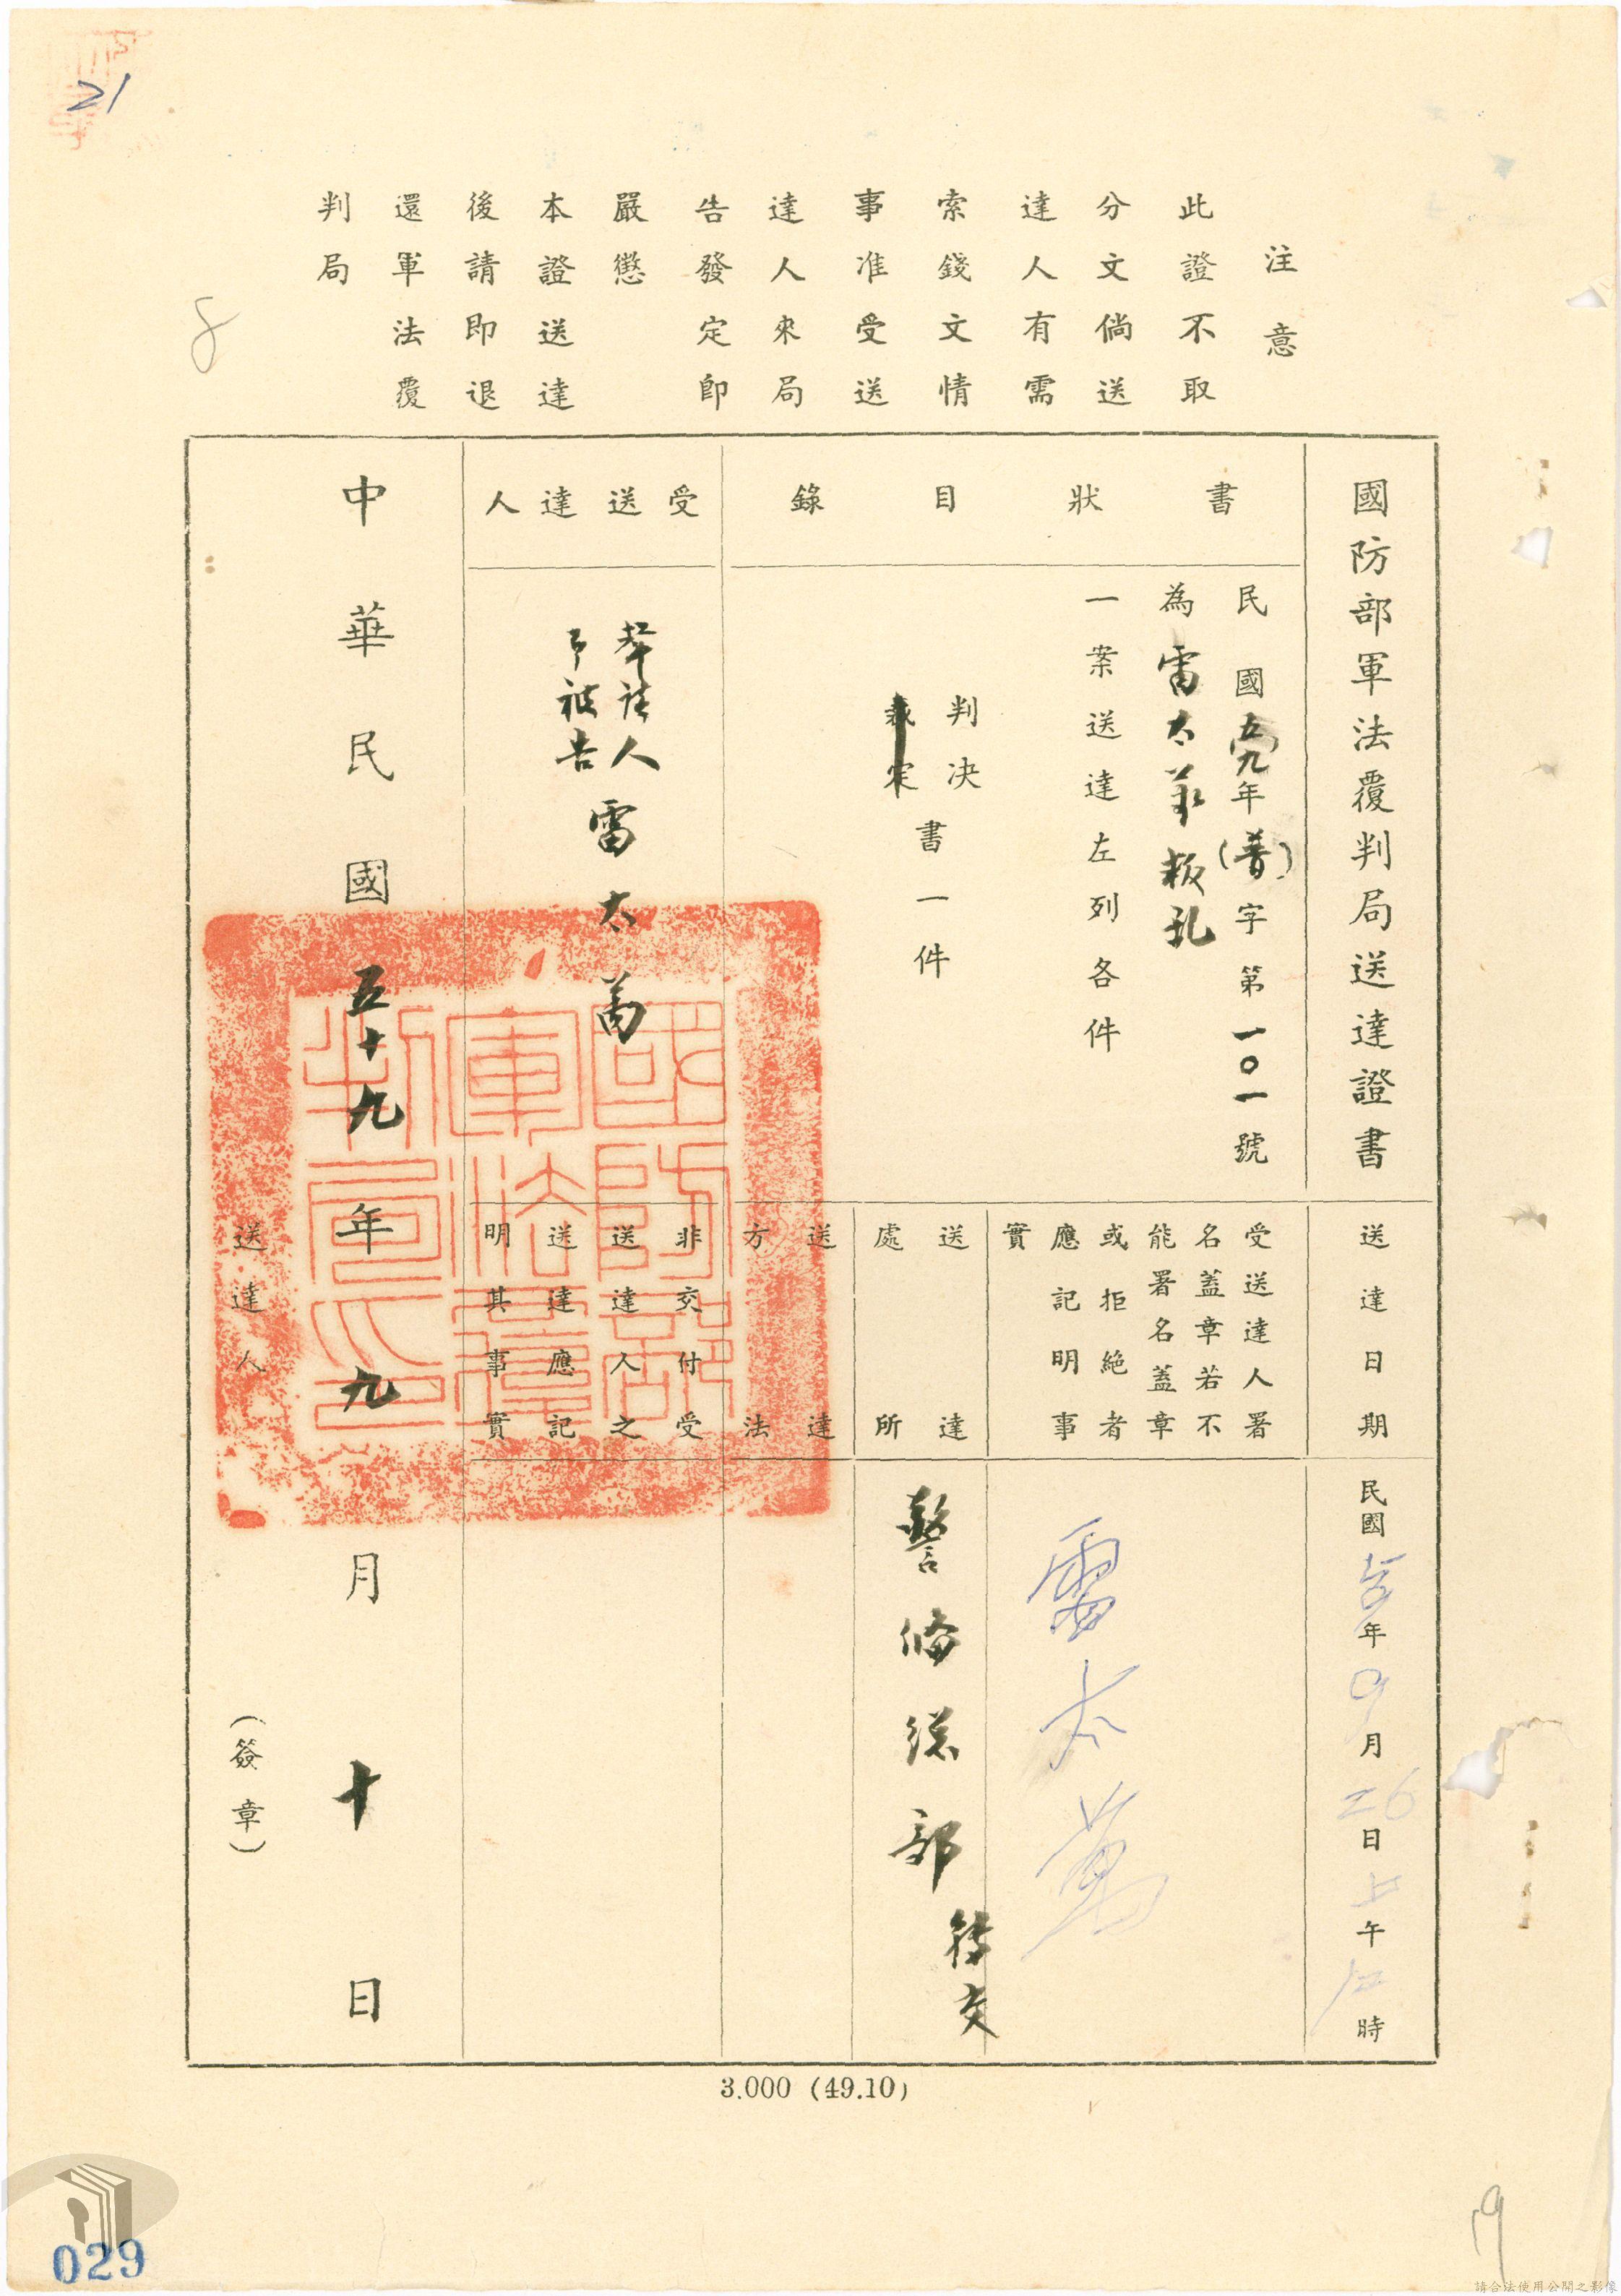 21
8
注意
此證不取
分文倘送
達人有需
索錢文情
事准受送
達人來局
告發定即
嚴懲
本證送達
後請即退
還軍法覆
判局
國防部軍法覆判局送達證書
書狀目錄
民國五九年(普)字第一〇一號
為雷大等叛亂
一案送達左列各件
判决
裁定
書一件
受送達人
聲請人
即被告
雷大萬
送達日期
民國年9月26日上午10時
受送達人署
名蓋章若不
能署名蓋章
或拒絕者
應記明事
實
雷大萬
送達
處所
警備總部
轉交
送達
方法
非交付受
送達人之
送達應記
明其事實
中華民國五十九年九月十日
送達人
(簽章)
國防部
軍法覆
判局印
3.000 (49.10)
19
029
請合法使用公開之影像